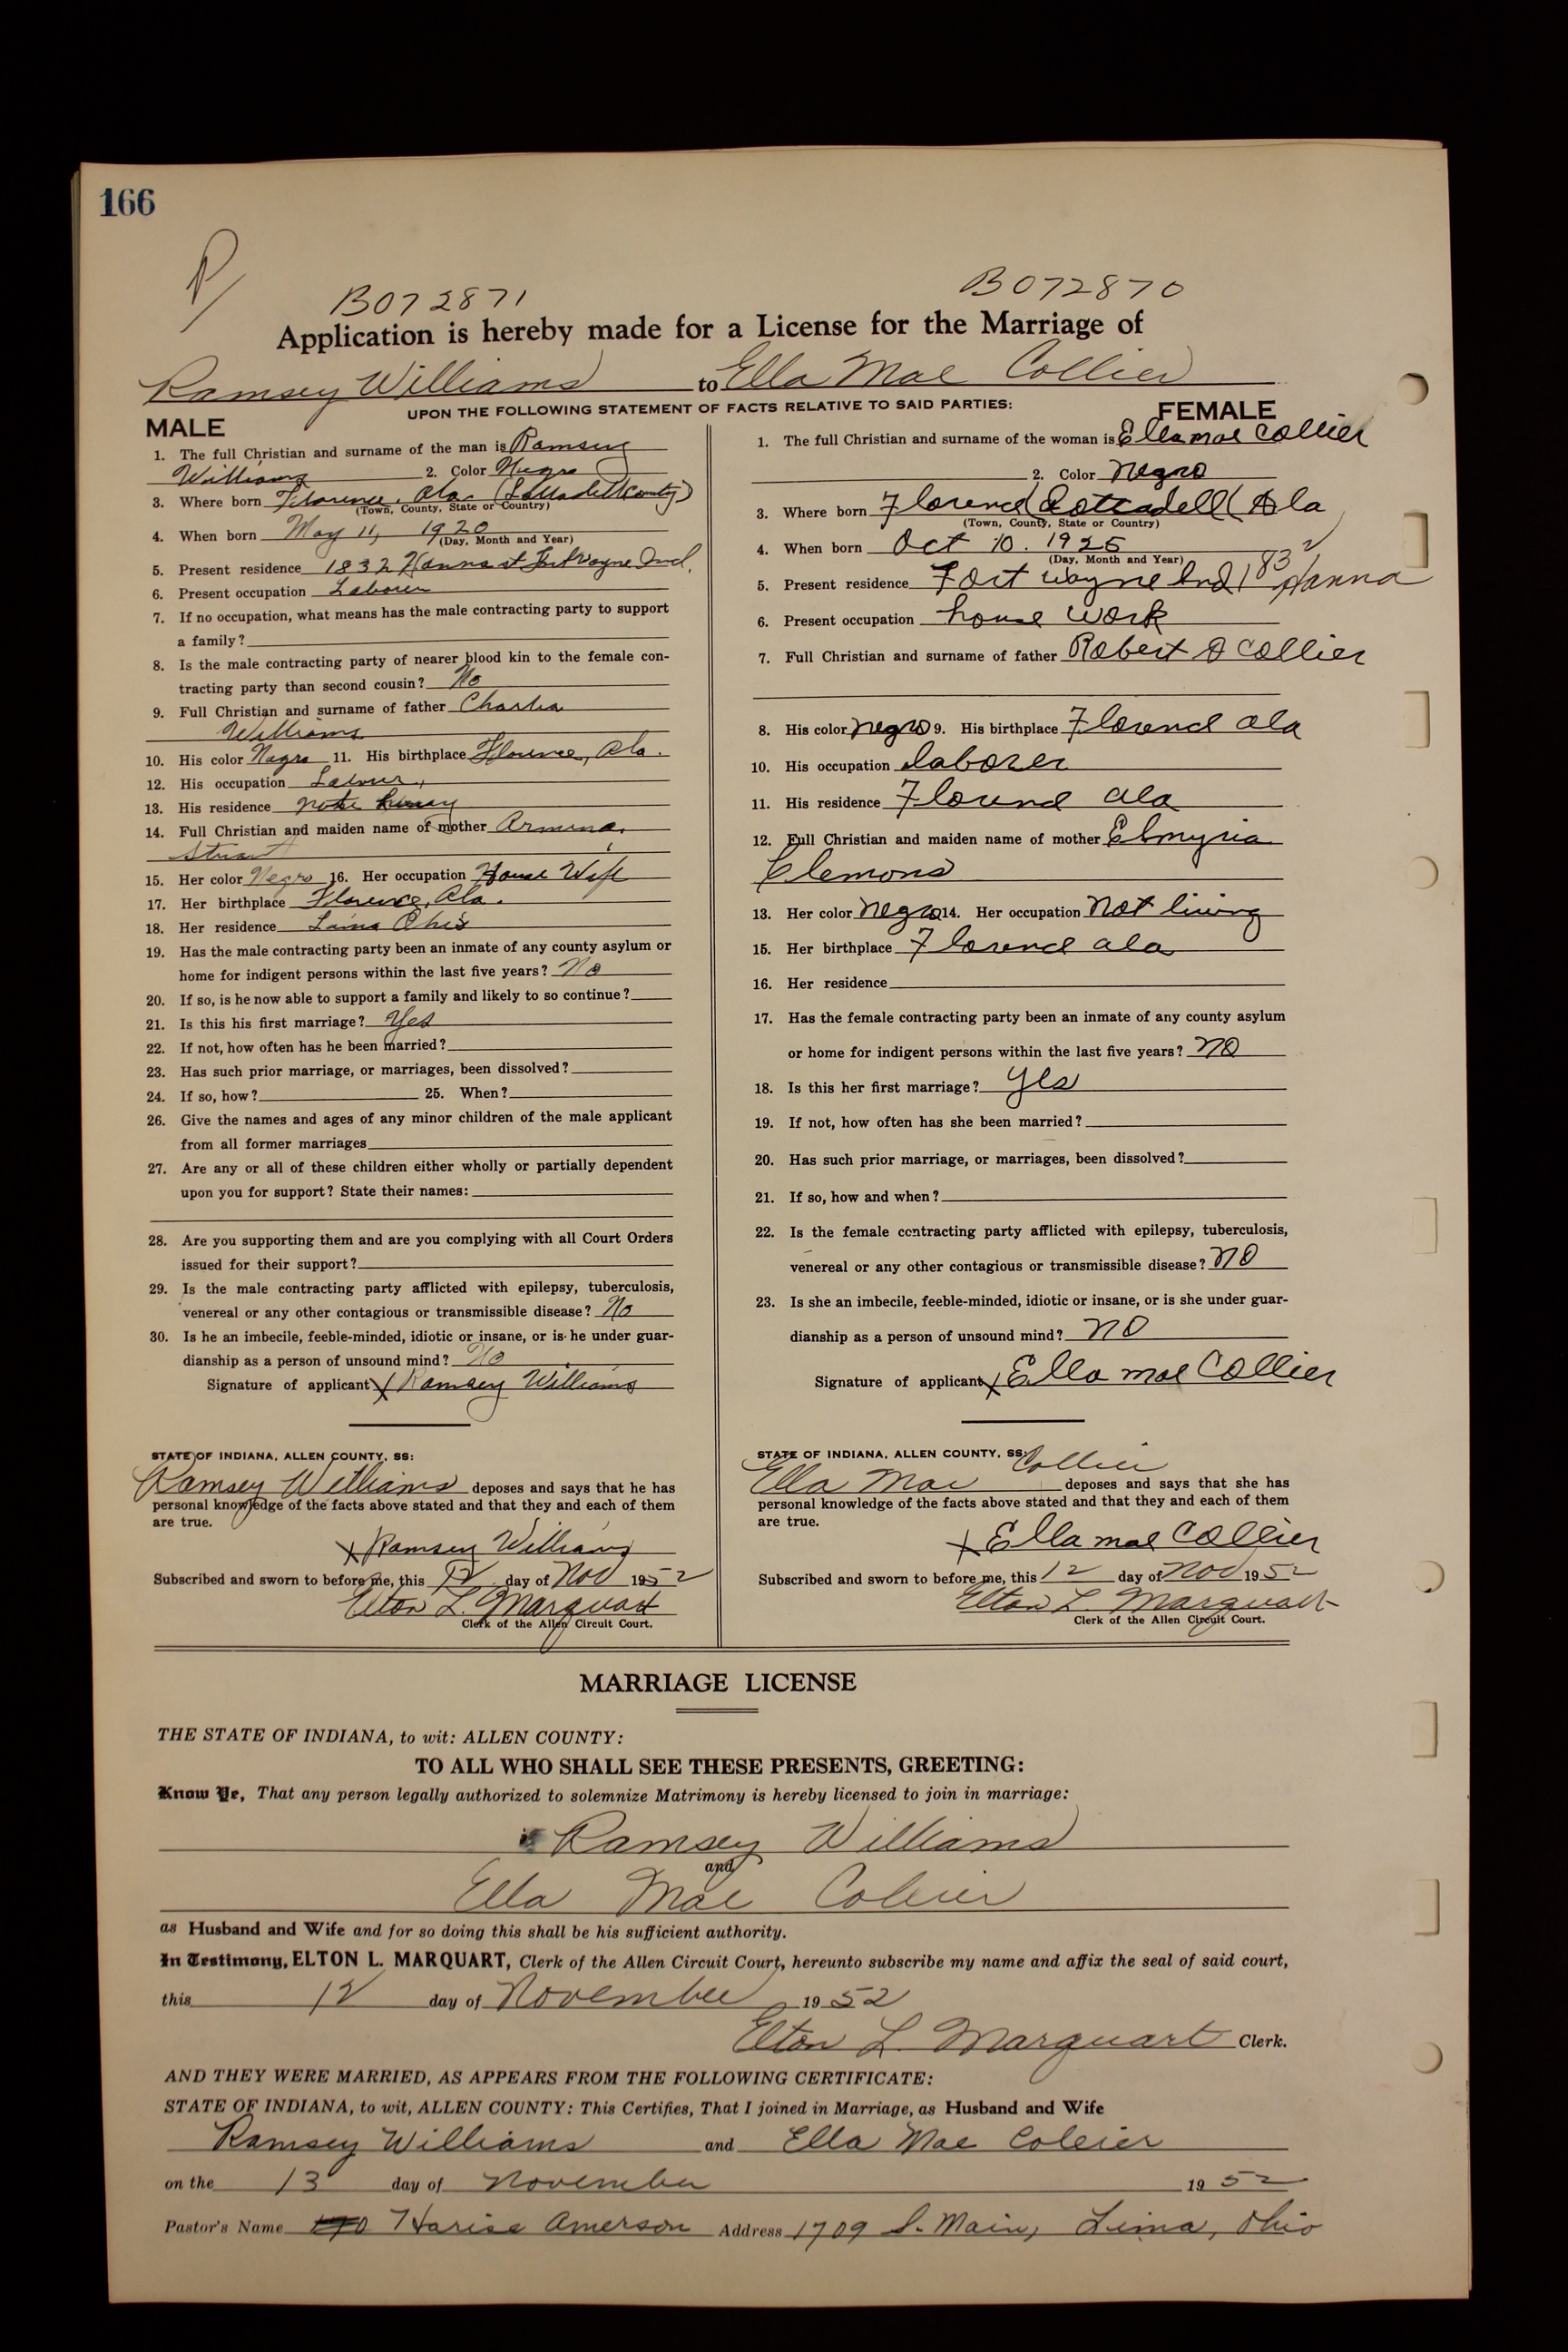 166
P
B072871
B072870
Application is hereby made for a License for the Marriage of
Ramsey Williams to Ella Mae Collier
UPON THE FOLLOWING STATEMENT OF FACTS RELATIVE TO SAID PARTIES:
MALE
1. The full Christian and surname of the man is Ramsey
Williams 2. Color Negro
3. Where born Florence, Ala. County)
(Town, County, State or Country)
4. When born May 11, 1920
(Day, Month and Year)
5. Present residence 1832 Hanna st Fort Wayne Ind.
6. Present occupation Laborer
7. If no occupation, what means has the male contracting party to support
a family?
8. Is the male contracting party of nearer blood kin to the female con-
tracting party than second cousin? No
9. Full Christian and surname of father Charlie
Williams
10. His color Negro 11. His birthplace Florence, Ala.
12. His occupation Labour,
13. His residence
14. Full Christian and maiden name of mother Armena,
15. Her color Negro 16. Her occupation House Wife
17. Her birthplace Florence, Ala.
18. Her residence Lima Ohio
19. Has the male contracting party been an inmate of any county asylum or
home for indigent persons within the last five years? No
20. If so, is he now able to support a family and likely to so continue?
21. Is this his first marriage? Yes
22. If not, how often has he been married?
23. Has such prior marriage, or marriages, been dissolved?
24. If so, how? 25. When?
26. Give the names and ages of any minor children of the male applicant
from all former marriages
27. Are any or all of these children either wholly or partially dependent
upon you for support? State their names:
28. Are you supporting them and are you complying with all Court Orders
issued for their support?
29. Is the male contracting party afflicted with epilepsy, tuberculosis,
venereal or any other contagious or transmissible disease? No
30. Is he an imbecile, feeble-minded, idiotic or insane, or is he under guar-
dianship as a person of unsound mind? No
Signature of applicant x Ramsey Williams
STATE OF INDIANA, ALLEN COUNTY, SS:
Ramsey Williams deposes and says that he has
personal knowledge of the facts above stated and that they and each of them
are true.
x Ramsey Williams
Subscribed and sworn to before me, this 12 day of Nov 1952
Elton L. Marquart
Clerk of the Allen Circuit Court.
FEMALE
1. The full Christian and surname of the woman is Ella mae Collier
2. Color negro
3. Where born Florence Ala
(Town, County, State or Country)
4. When born Oct 10. 1925
(Day, Month and Year)
5. Present residence Fort Wayne Ind 1832 Hanna
6. Present occupation house work
7. Full Christian and surname of father Robert Collier
8. His color negro 9. His birthplace Florence ala
10. His occupation laborer
11. His residence Florence ala
12. Full Christian and maiden name of mother Elmyria
Clemons
13. Her color negro 14. Her occupation not living
15. Her birthplace Florence ala
16. Her residence
17. Has the female contracting party been an inmate of any county asylum
or home for indigent persons within the last five years? no
18. Is this her first marriage? yes
19. If not, how often has she been married?
20. Has such prior marriage, or marriages, been dissolved?
21. If so, how and when?
22. Is the female contracting party afflicted with epilepsy, tuberculosis,
venereal or any other contagious or transmissible disease? no
23. Is she an imbecile, feeble-minded, idiotic or insane, or is she under guar-
dianship as a person of unsound mind? no
Signature of applicant x Ella mae Collier
STATE OF INDIANA, ALLEN COUNTY, SS:
Ella Mae Collier deposes and says that she has
personal knowledge of the facts above stated and that they and each of them
are true.
x Ella mae Collier
Subscribed and sworn to before me, this 12 day of Nov 1952
Elton L. Marquart
Clerk of the Allen Circuit Court.
MARRIAGE LICENSE
THE STATE OF INDIANA, to wit: ALLEN COUNTY:
TO ALL WHO SHALL SEE THESE PRESENTS, GREETING:
Know Ye, That any person legally authorized to solemnize Matrimony is hereby licensed to join in marriage:
Ramsey Williams
and
Ella Mae Collier
as Husband and Wife and for so doing this shall be his sufficient authority.
In Testimony, ELTON L. MARQUART, Clerk of the Allen Circuit Court, hereunto subscribe my name and affix the seal of said court,
this 12 day of November 1952
Elton L. Marquart Clerk.
AND THEY WERE MARRIED, AS APPEARS FROM THE FOLLOWING CERTIFICATE:
STATE OF INDIANA, to wit, ALLEN COUNTY: This Certifies, That I joined in Marriage, as Husband and Wife
Ramsey Williams and Ella Mae Collier
on the 13 day of November 1952
Pastor's Name Harise Amerson Address 1709 S. Main, Lima, Ohio